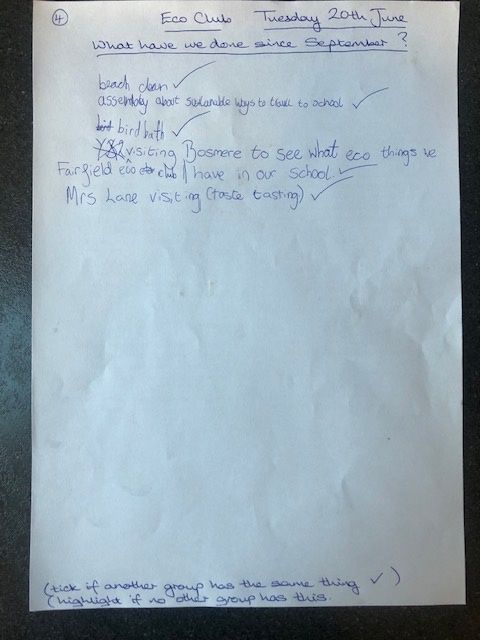 ④ Eco Club Tuesday 20th June
What have we done since September?
beach clean ✓
assembly about sustainable ways to travel to school ✓
bird bath ✓
visiting Bosmere to see what eco things we
Fairfield eco club have in our school. ✓
Mrs Lane visiting (taste tasting) ✓
(tick if another group has the same thing ✓)
(highlight if no other group has this.